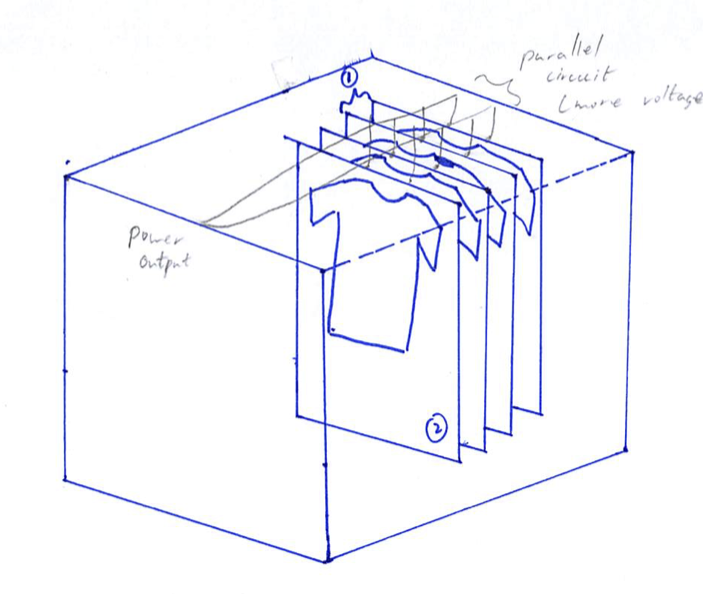 ①
parallel
circuit
(more voltage
power
output
②